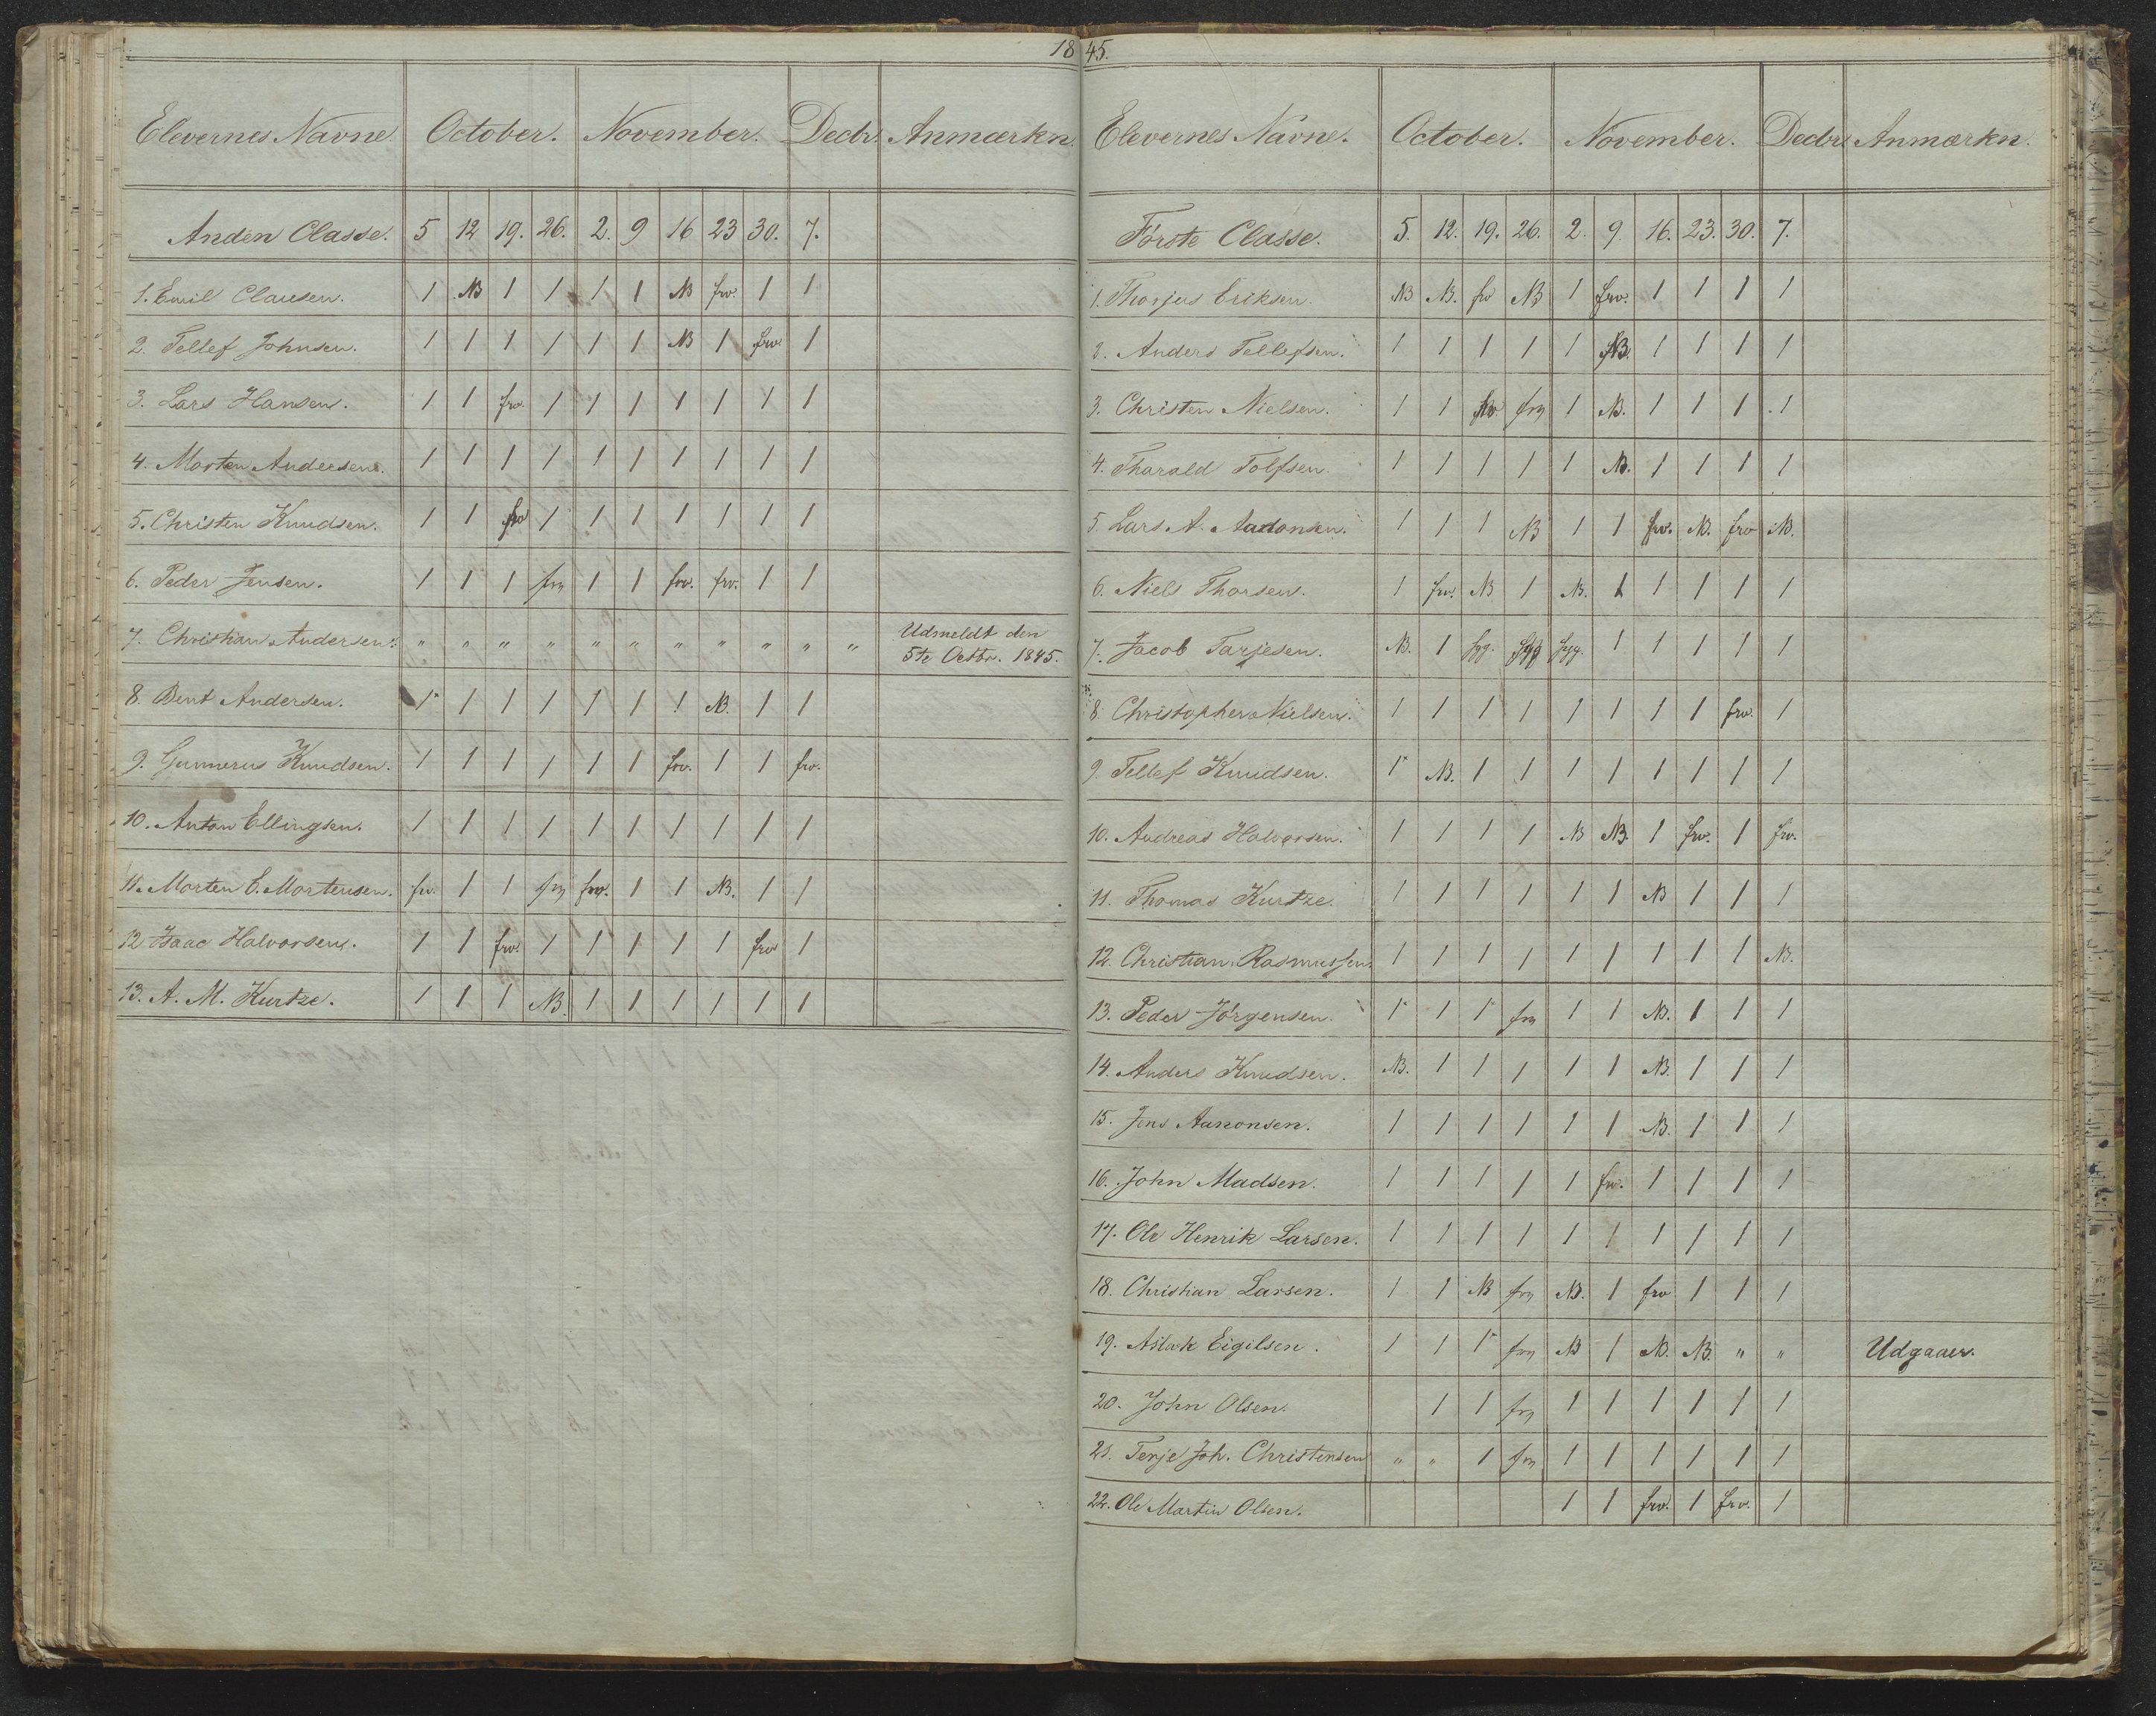 1845.
Elevernes Navne October. November. Decbr. Anmærkn.
Anden Classe. 5 12 19. 26. 2. 9 16 23 30. 7.
1. Emil Clausen. 1 NB 1 1 1 1 NB frv. 1 1
2. Tellef Johnsen. 1 1 1 1 1 1 NB 1 frv. 1
3. Lars Hansen. 1 1 frv. 1 1 1 1 1 1 1
4. Morten Andersen. 1 1 1 1 1 1 1 1 1 1
5. Christen Knudsen. 1 1 frv 1 1 1 1 1 1 1
6. Peder Jensen. 1 1 1 frv 1 1 frv. frv. 1 1
7. Christian Andersen. " " " " " " " " " " " Udmeldt den
5te Octbr. 1845.
8. Bent Andersen. 1 1 1 1 1 1 1 NB. 1 1
9. Gunnerus Knudsen. 1 1 1 1 1 1 frv. 1 1 frv.
10. Anton Ellingsen. 1 1 1 1 1 1 1 1 1 1
11. Morten E. Mortensen. frv. 1 1 frv frv. 1 1 NB. 1 1
12 Isaac Halvorsen. 1 1 frv. 1 1 1 1 1 frv 1
13. A. M. Kurtze. 1 1 1 NB. 1 1 1 1 1 1
Elevernes Navne. October. November. Decbr. Anmærkn.
Förste Classe. 5. 12. 19. 26. 2. 9. 16. 23. 30. 7.
1. Thorjus Eriksen. NB NB. frv NB 1 frv. 1 1 1 1
2. Anders Tellefsen. 1 1 1 1 1 NB. 1 1 1 1
3. Christen Nielsen. 1 1 frv frv 1 NB. 1 1 1 1
4. Tharald Tolfsen. 1 1 1 1 1 NB. 1 1 1 1
5. Lars A. Aadonsen. 1 1 1 NB 1 1 frv. NB. frv NB.
6. Niels Thorsen. 1 frv. NB 1 NB. 1 1 1 1 1
7. Jacob Tarjesen. NB. 1 syg. syg syg. 1 1 1 1 1
8. Christopher Nielsen. 1 1 1 1 1 1 1 1 frv. 1
9. Tellef Knudsen. 1 NB. 1 1 1 1 1 1 1 1
10. Andreas Halvorsen. 1 1 1 1 NB NB. 1 frv. 1 frv.
11. Thomas Kurtze. 1 1 1 1 1 1 NB 1 1 1
12. Christian Rasmussen. 1 1 1 1 1 1 1 1 1 NB.
13. Peder Jörgensen. 1 1 1 frv 1 1 NB. 1 1 1
14. Anders Knudsen. NB. 1 1 1 1 1 NB. 1 1 1
15. Jens Aanonsen. 1 1 1 1 1 1 NB. 1 1 1
16. John Madsen. 1 1 1 1 1 frv. 1 1 1 1
17. Ole Henrik Larsen. 1 1 1 1 1 1 1 1 1 1
18. Christian Larsen. 1 1 NB frv NB. 1 frv 1 1 1
19. Aslak Eigilsen. 1 1 1 frv NB 1 NB. NB. " " Udgaaer.
20. John Olsen. 1 1 frv 1 1 1 1 1 1
21. Terje Joh. Christensen " " 1 frv 1 1 1 1 1 1
22. Ole Martin Olsen. 1 1 frv. 1 frv. 1